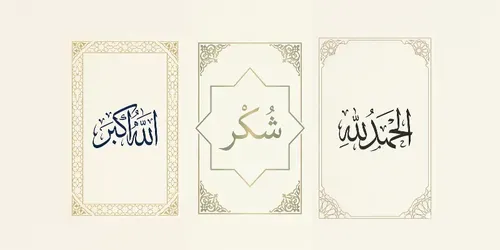 الله أكبر
شُكْر
الحمد لله